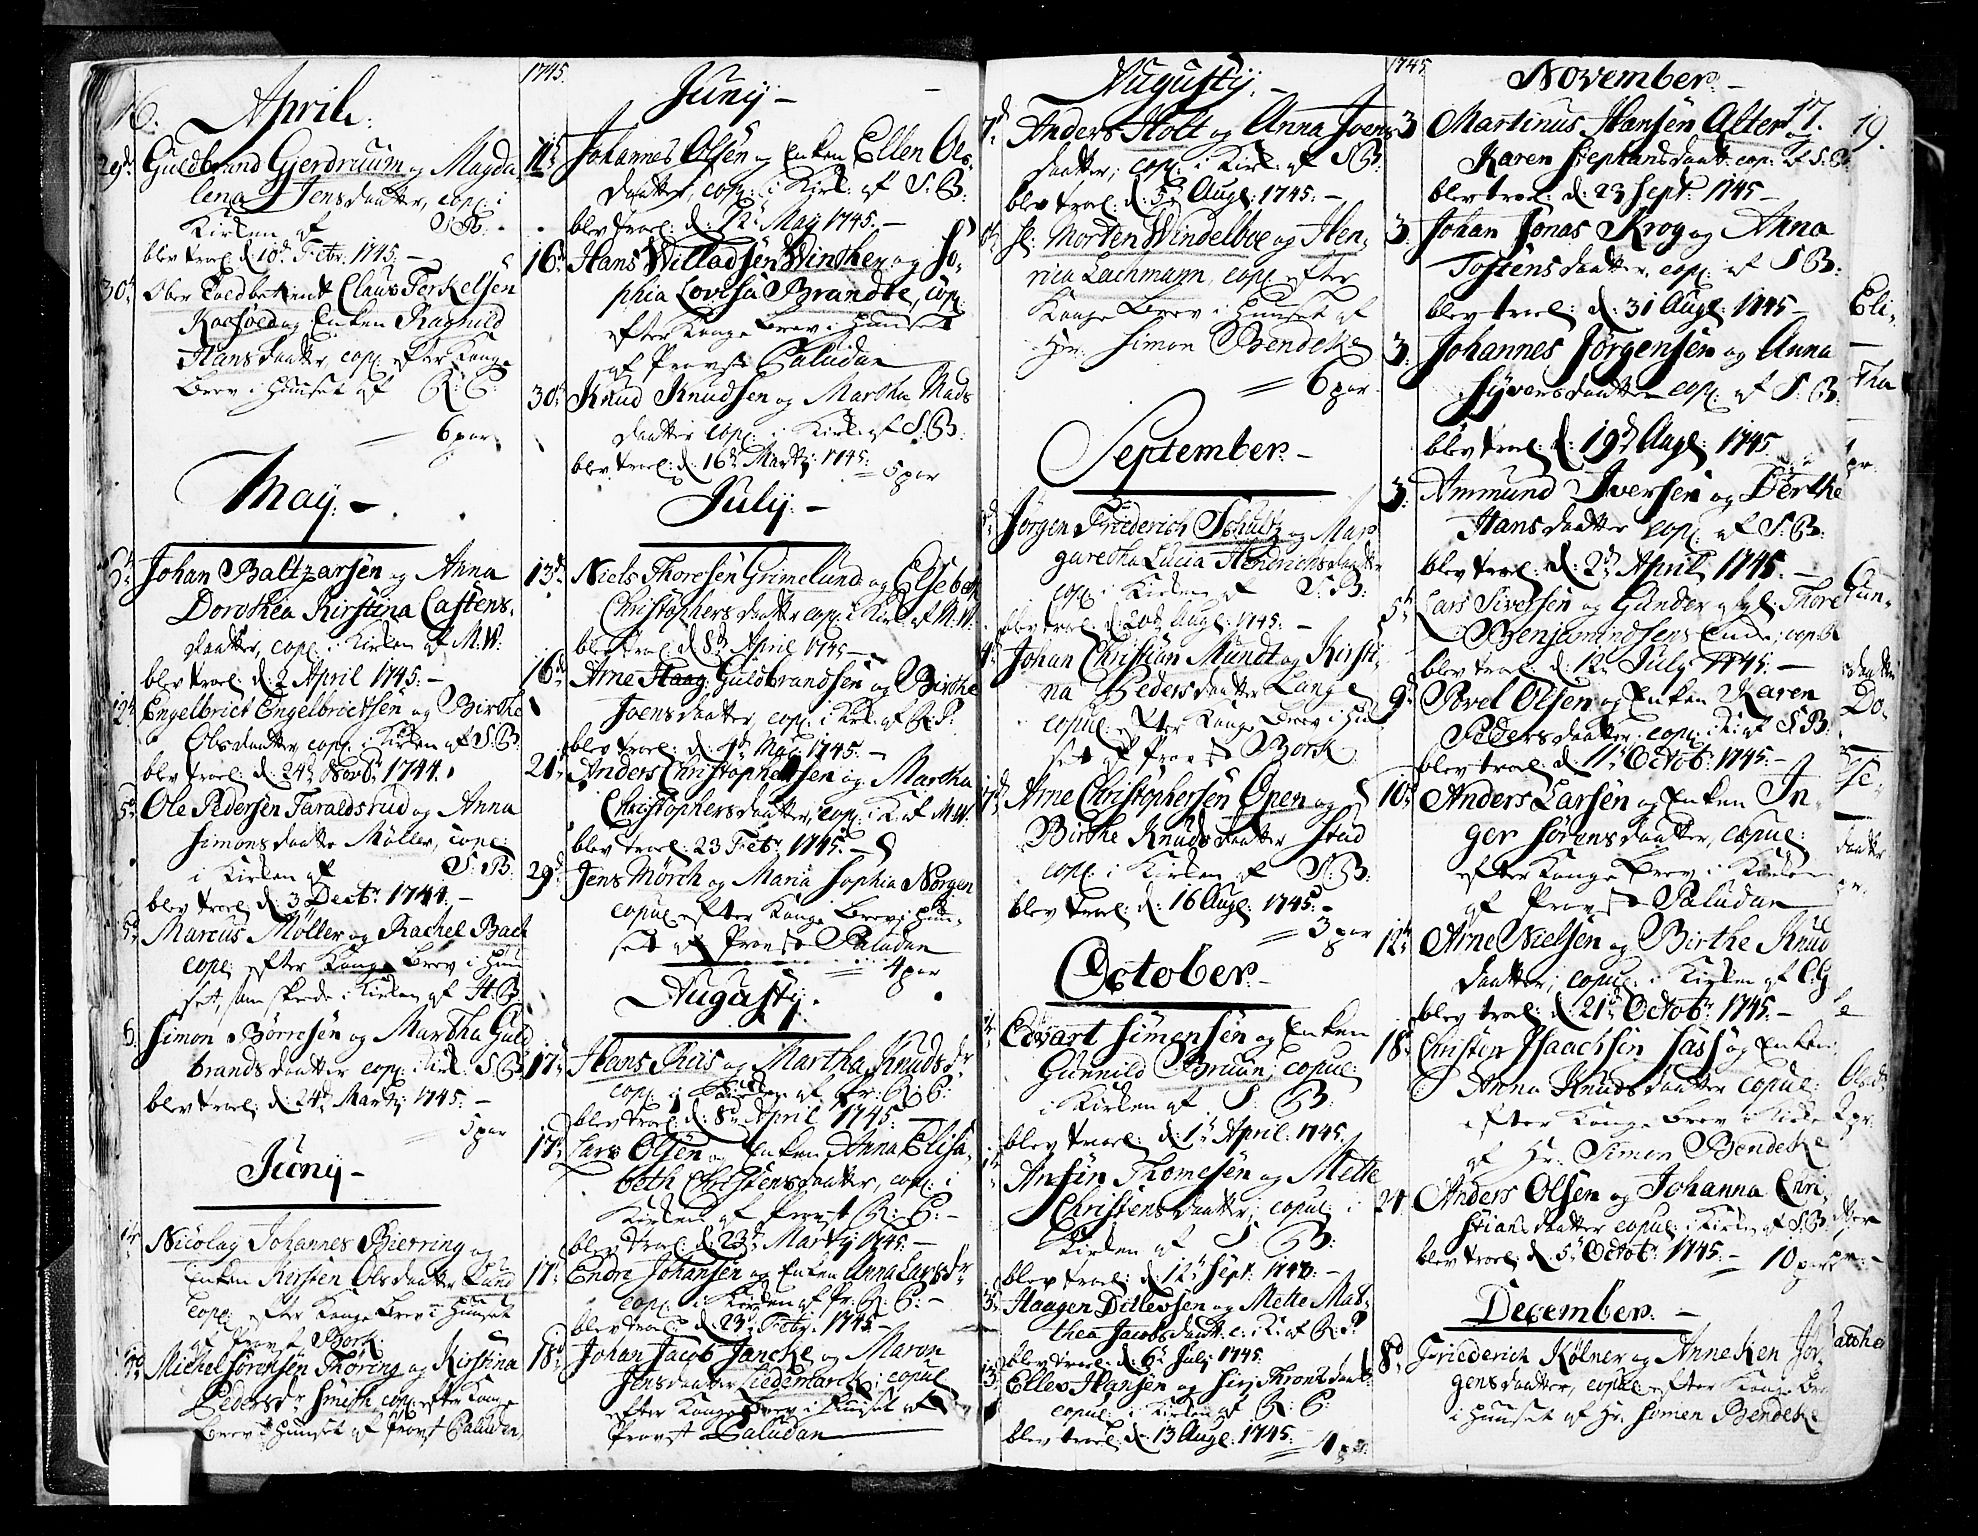 16.
April.
29d. Guldbrand Gjerdruum og Magda-
lena Jensdaatter, copl: i
Kirken af S:B:
blev trol: d: 10d. Febr. 1745. —
30d. Ober Toldbetient Claus Terkelsen
og Enken Ragnild
Hansdaatter, cop: efter Konge
Brev i Huuset af R: P:
6 par.
May. —
Johan Baltzarsen og Anna
Dorothea Kirstina Castens-
daatter, copl: i Kirken af M.W:
blev trol: d: 2 April 1745. —
12t. Engelbriet Engelbrietsen og Birthe
Olsdaatter copl: i Kirken af S:B:
blev trol: d: 24d. Novb. 1744.
Ole Pedersen Taraldsrud og Anna
Simonsdaatter Møller, copl:
i Kirken af S:B:
blev trol: d: 3 Decbr. 1744. —
Marcus Møller og Rachel Bach
copl: efter Konge Brev i Huu-
set, som skede i Kirken af H.B.
Simon Børresen og Martha Guld-
brandsdaatter copl: i Kirk: S:B:
blev trol: d: 24d. Martij 1745. —
5 par
Juny —
Nicolay Johannes Bierring og
Enken Kirsten Olsdaatter Lund
copl: efter Konge Brev i Huuset
af Provst Bork.
Michel Sørensen Thøring og Kirstina
Pedersdr. Smith cop: efter Konge
Brev i Huuset af Provst Paludan.
1745.
Juny —
Johannes Olsen og Enken Ellen Ols-
daatter, copl: i Kirk: af S:B:
blev trol: d: 12t. May 1745. —
16d. Hans Willadsen Winther og So-
phia Lovisa Brandte, cop:
efter Konge Brev i Huuset
af Provst Paludan
30d. Knud Knudsen og Martha Mads
daatter copl: i Kirk: af S:B:
blev trol: d: 16d. Martij 1745. 5 par
July. —
13d. Niels Thoresen Grimelund og Elsebeth
Christophersdaatter copl: i Kirk: af M.W:
blev trol: d: 8d. April 1745 —
16d. Arne Haag Guldbrandsen og Birthe
Joensdaatter, copl: i Kirk: af R:P:
blev trol: d: 4d. May 1745. —
21d. Anders Christophersen og Martha
Christophersdaatter, cop: i K: af M.W.
blev trol: 23 Febr. 1745. —
29d. Jens Mørch og Maria Sophia Nørgen
copul efter Konge Brev i Huu-
set af Provst Paludan
4 par
Augusty.
17d. Hans Riis og Martha Knudsdr.
copl: i Kirken af Pr: R: P:
blev trol: d: 8d. April 1745.
17d. Lars Olsen og Enken Anna Elisa-
beth Christensdaatter, copl: i
Kirken af Provst R: P: —
blev trol: d: 23d. Martij 1745. —
17d. Endre Johansen og Enken Anna Larsdr.
copl: i Kirken af Pr: R: P: —
blev trol: d: 23d. Febr. 1745 —
18d. Johan Jacob Jancke og Maren
Jensdaatter Liedemarck; copul
efter Konge Brev i Huuset af
Provst Paludan
Augusty. —
Anders Holt og Anna Joens
daatter, copl: i Kirk: af S:B:
blev trol: d: 5d. Augl: 1745. —
Sr: Morten Windelboe og Hen-
rica Lachmann, copl: efter
Konge Brev i Huuset af
Hr. Simon Bendeke
6 par
September. —
Jørgen Friederich Schultz og Mar-
garetha Lucia Hendrichsdaatter
copl: i Kirken af S:B:
blev trol: d: 20d. Augl: 1745. —
Johan Christian Mundt og Kirsti-
na Pedersdaatter Lange
copul: efter Konge Brev i Huu-
set af Provst Bork
Arne Christophersen Open og
Birthe Knudsdaatter Stud
copl: i Kirken af S:B:
blev trol: d: 16 Augl: 1745. —
3 par
October. —
Edvart Simensen og Enken
Gunnild Bruun; copul:
i Kirken af S: B:
blev trol: d: 1d. April. 1745.
Ansten Thomesen og Mette
Christensdaatter; copul: i
Kirken af S: B:
blev trol: d: 12d. Sept. 1745. —
Haagen Ditlevsen og Mette Mat-
thea Jacobsdaatt: c: i K: af R: P.
blev trol: d: 6d. July 1745.
Elles Hansen og Siri Throndsdaatt:
copul: i Kirken af R: P:
blev trol: d: 13 Augl: 1745. — 4 par
1745
November. —
17.
3 Martinus Hansen Alter og
Karen Stephansdaatt: cop: af S:B:
blev trol: d: 23 Sept. 1745 —
3. Johan Jonas Krog og Anna
Tostensdaatter, copl: af S:B:
blev trol: d: 31 Augl: 1745 —
3. Johannes Jørgensen og Anna
Syversdaatter copl: af S:B:
blev trol: d: 19d. Augl: 1745.
3. Ammund Iversen og Berthe
Hansdaatter copl: af S:B:
blev trol: d: 2d. April 1745. —
5t. Lars Sivertsen og Gunder afgl: Thore
Benjamindsens Enke; cop:
blev trol: d: 12 July 1745. —
9d. Povel Olsen og Enken Karen
Pedersdaatter, cop: i K: af S:B:
blev trol: d: 11d. Octob: 1745. —
10d. Anders Larsen og Enken In-
ger Sørensdaatter, copul:
efter Konge Brev i Kirken
af Provst Paludan
12t. Arne Nielsen og Birthe Knud
daatter; copul: i Kirken af
blev trol: d: 21d. Octob: 1745. —
18d. Christen Isaachsen Sass og Enken
Anna Knudsdaatter copul:
efter Konge Brev i Kirken
af Hr: Simon Bendeke
24 Anders Olsen og Johanna Chri-
stiansdaatter copul: i Kirken af S.B.
blev trol: d: 5d. Octob: 1745. — 10 par
December. —
8d. Friederich Kølner og Anneken Jør-
gensdaatter, copul efter Konge Brev
i Huuset af Hr. Simon Bendeke
19.
Eli-
Tha
Gun-
daatter
Do-
daatter